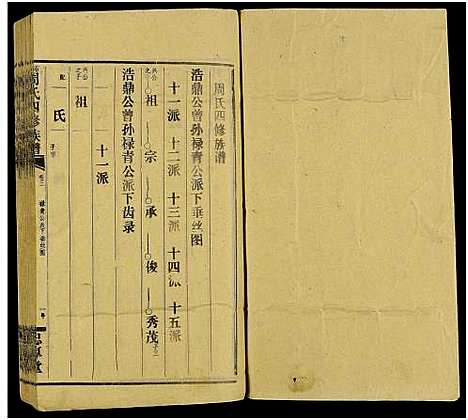 周氏四修族谱
浩鼎公曾孙禄青公派下垂丝图
十一派 十二派 十三派 十四派 十五派
祖 宗 承 俊 秀茂
浩鼎公曾孙禄青公派下齿录
十一派
祖
配 氏
周氏四修族谱